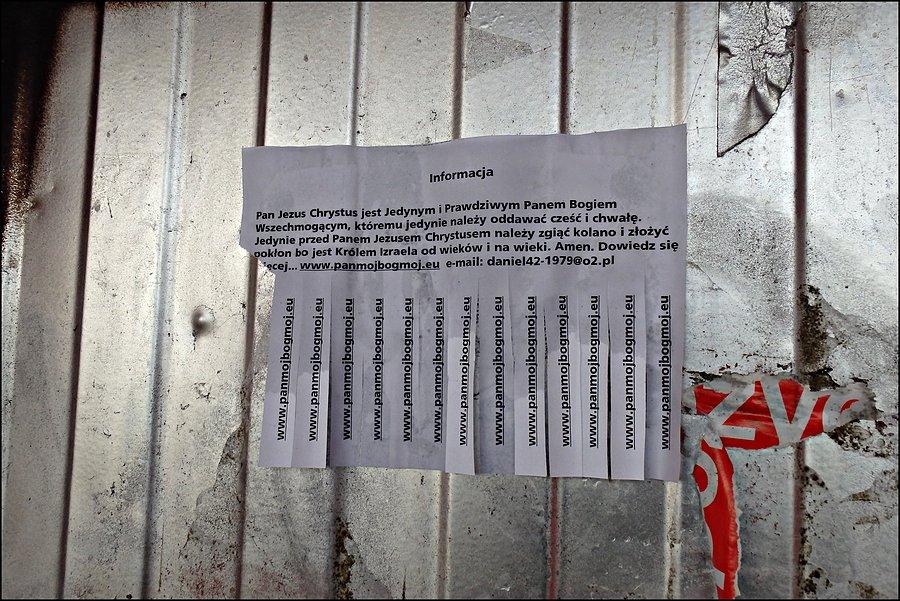 Informacja
Pan Jezus Chrystus jest Jedynym i Prawdziwym Panem Bogiem
Wszechmogącym, któremu jedynie należy oddawać cześć i chwałę.
Jedynie przed Panem Jezusem Chrystusem należy zgiąć kolano i złożyć
pokłon bo jest Królem Izraela od wieków i na wieki. Amen. Dowiedz się
ięcej... www.panmojbogmoj.eu e-mail: daniel42-1979@o2.pl
www.panmojbogmoj.eu
www.panmojbogmoj.eu
www.panmojbogmoj.eu
www.panmojbogmoj.eu
www.panmojbogmoj.eu
www.panmojbogmoj.eu
www.panmojbogmoj.eu
www.panmojbogmoj.eu
www.panmojbogmoj.eu
www.panmojbogmoj.eu
www.panmojbogmoj.eu
www.panmojbogmoj.eu
www.panmojbogmoj.eu